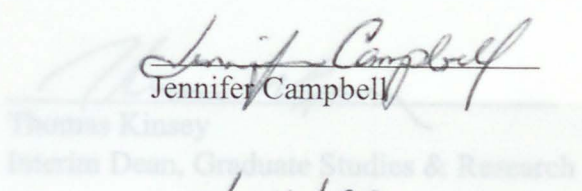 Jennifer Campbell
Jennifer Campbell
Thomas Kinsey
Interim Dean, Graduate Studies & Research